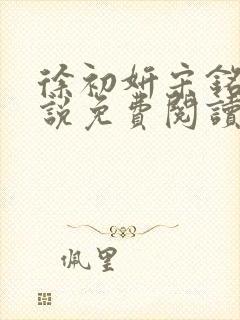 徐初妍宋銘
說免費閱讀
佩里